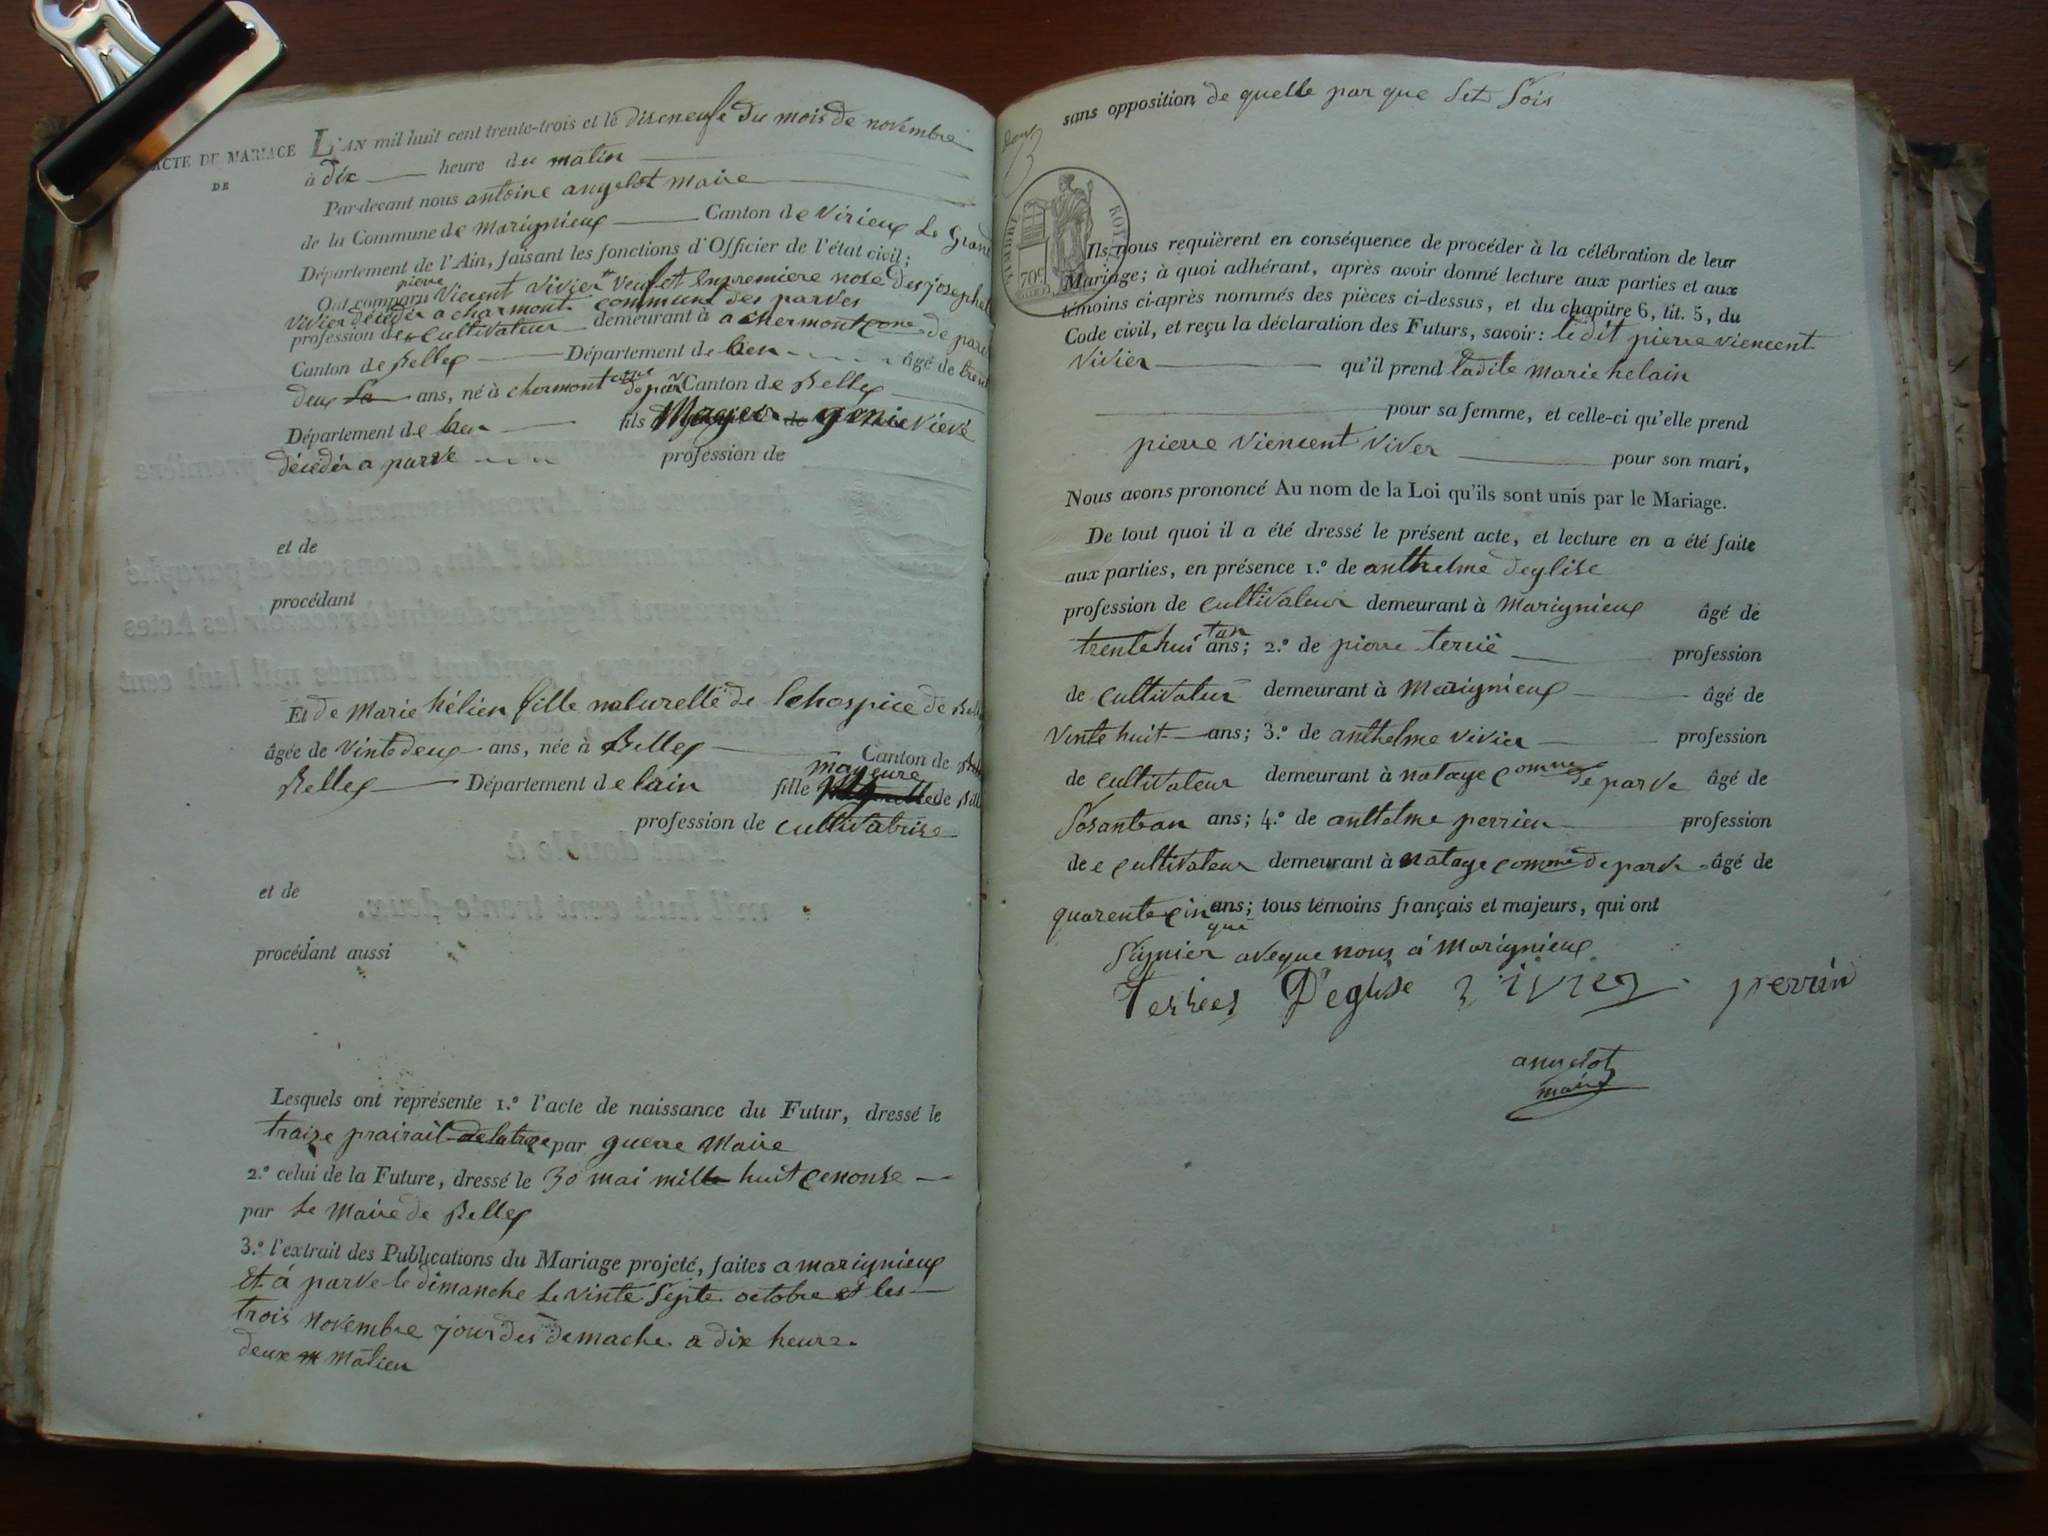 ACTE DE MARIAGE
DE
L'AN mil huit cent trente-trois et le diseneufe du mois de novembre
à dix heure du matin
Par-devant nous antoine angelot maire
de la Commune de marignieux Canton de virieux Le Grand
Département de l'Ain, faisant les fonctions d'Officier de l'état civil;
Ont comparu pierre Viensent vivier veuf et enpremiere nose de josephe
vivier décédér a charmont commune des parves
profession de cultivateur demeurant à a chermont cone de parve
Canton de Belley Département de lien âgé de trent
deux ans, né à chermont cone de parv Canton de Belley
Département de lien fils Mageur de genievieve
décédér a parve profession de
et de
procédant
Et de Marie hélien fille naturelle de Lehospice de Belley
âgée de vinte deux ans, née à Belley Canton de
Belley Département de lain fille mageure de
profession de cultivatrise
et de
procédant aussi
Lesquels ont représenté 1.º l'acte de naissance du Futur, dressé le
traize prairail par guerre Maire
2.º celui de la Future, dressé le 30 mai mille huit cenonse
par le Maire de Belley
3.º l'extrait des Publications du Mariage projeté, faites a marignieux
Et à parve le dimanche le vinte septe octobre et les
trois novembre jour des demache a dix heure
deux matien
sans opposition, de quelle par que set sois
TIMBRE ROYAL
70c
Ils nous requièrent en conséquence de procéder à la célébration de leur
Mariage; à quoi adhérant, après avoir donné lecture aux parties et aux
témoins ci-après nommés des pièces ci-dessus, et du chapitre 6, tit. 5, du
Code civil, et reçu la déclaration des Futurs, savoir: ledit pierre viencent
vivier qu'il prend ladite marie helain
pour sa femme, et celle-ci qu'elle prend
pierre viencent viver pour son mari,
Nous avons prononcé Au nom de la Loi qu'ils sont unis par le Mariage.
De tout quoi il a été dressé le présent acte, et lecture en a été faite
aux parties, en présence 1.º de anthelme deglise
profession de cultivateur demeurant à marignieux âgé de
trente hui tan ans; 2.º de pierre terrié profession
de cultivateur demeurant à marignieux âgé de
vente huit ans; 3.º de anthelme vivier profession
de cultivateur demeurant à nataye comme de parve âgé de
sosantean ans; 4.º de anthelme perrien profession
de cultivateur demeurant à nataye comme de parve âgé de
quarente cinque ans; tous témoins français et majeurs, qui ont
signier aveque nous à marignieux
Terrier D'eglise vivier perrin
angelot
maire